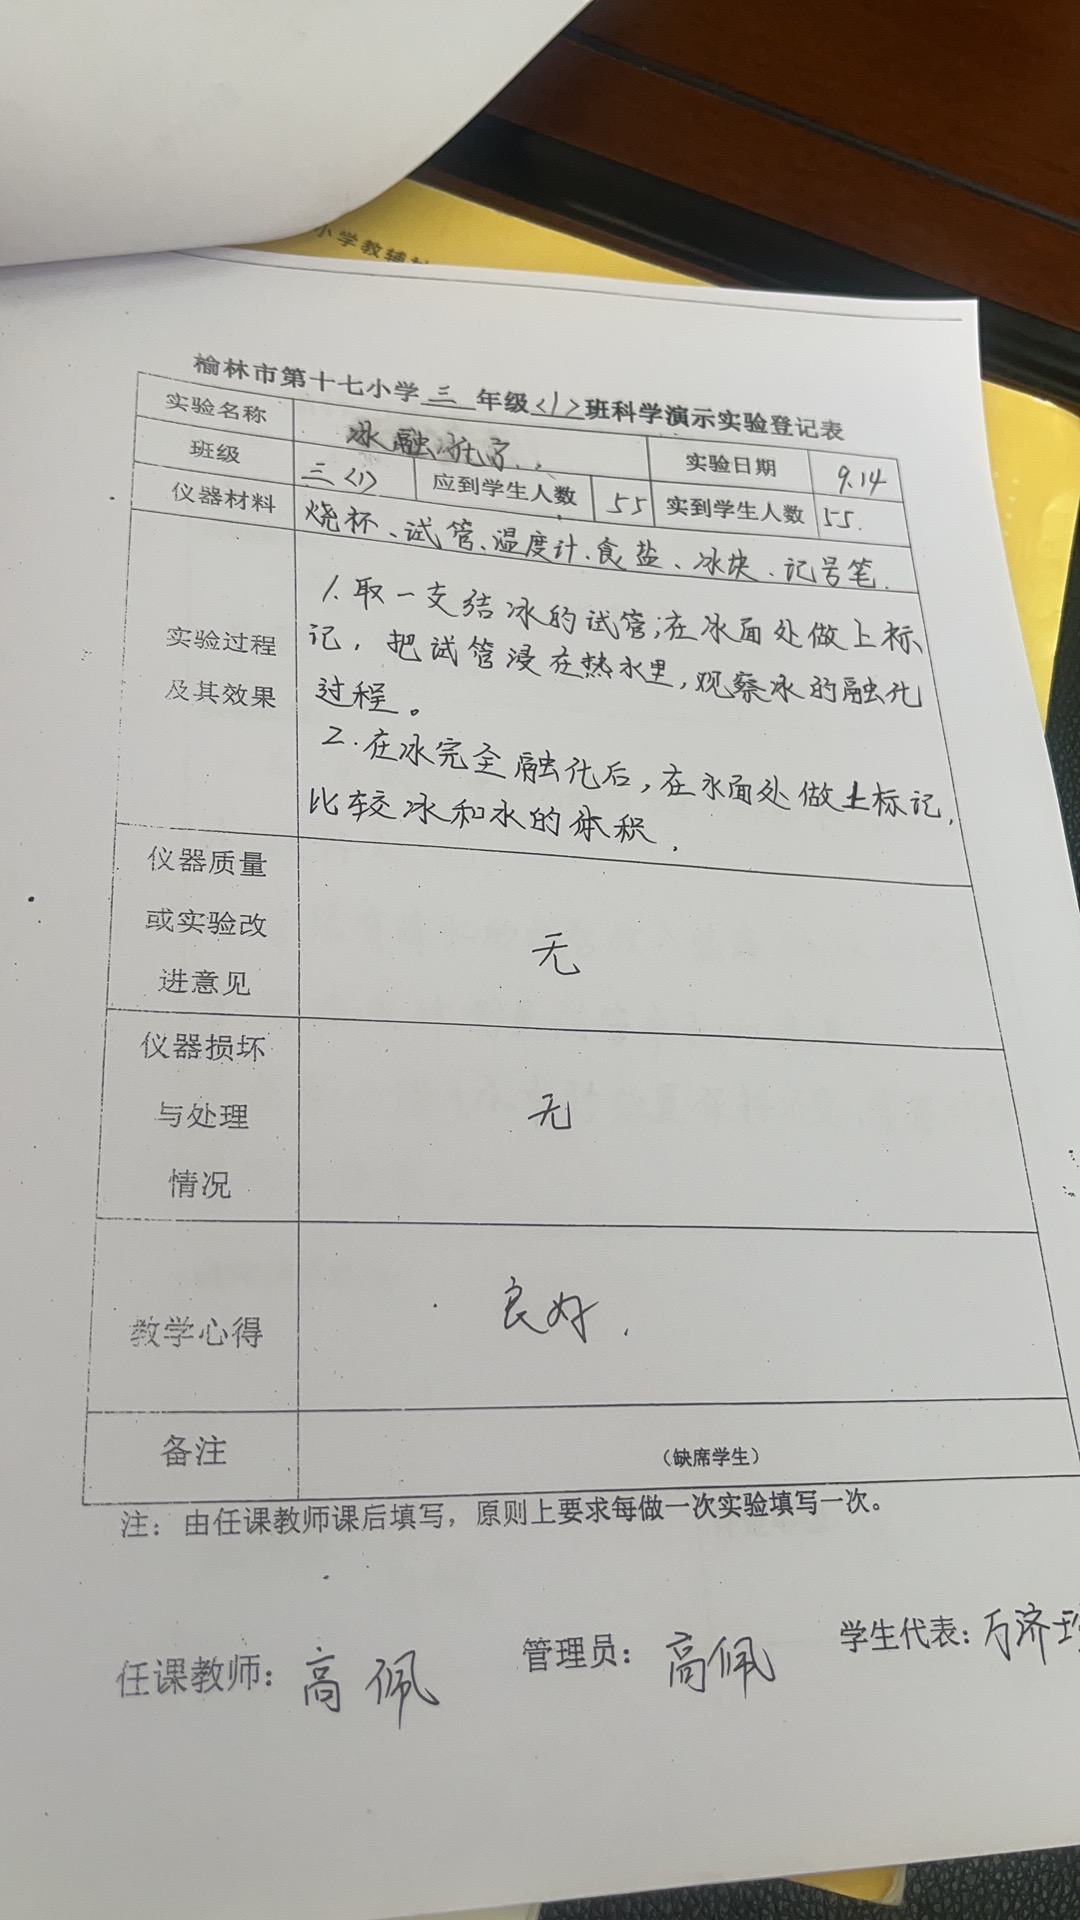 小学教辅
榆林市第十七小学三年级<1>班科学演示实验登记表
实验名称 冰融化了. 实验日期 9.14
班级 三<1> 应到学生人数 55 实到学生人数 55.
仪器材料 烧杯、试管、温度计、食盐、冰块、记号笔.
实验过程
及其效果
1.取一支结冰的试管,在冰面处做上标
记，把试管浸在热水里,观察冰的融化
过程。
2.在冰完全融化后,在水面处做上标记,
比较冰和水的体积.
仪器质量
或实验改
进意见
无
仪器损坏
与处理
情况
无
教学心得 良好.
备注 （缺席学生）
注：由任课教师课后填写，原则上要求每做一次实验填写一次。
任课教师：高佩 管理员：高佩 学生代表：万济